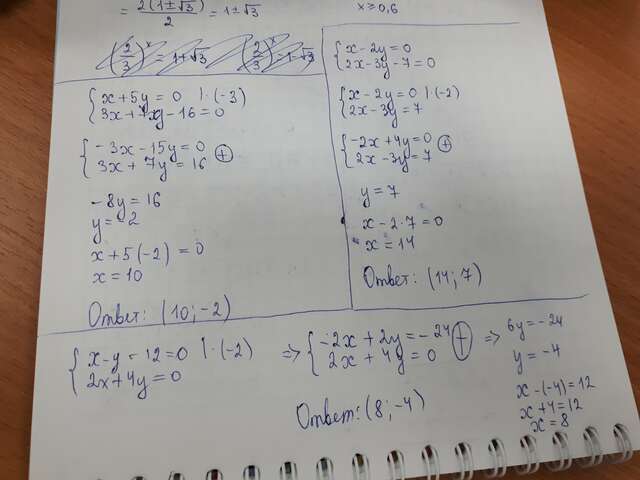 = 2(1±√3)/2 = 1±√3
x ≥ 0,6
(2/3)^x = 1+√3 (2/3)^x = 1-√3
{ x+5y = 0 | ·(-3)
3x+7y-16 = 0
{ -3x-15y = 0 (+)
3x+7y = 16
-8y = 16
y = -2
x+5(-2) = 0
x = 10
Ответ: (10; -2)
{ x-2y = 0
2x-3y-7 = 0
{ x-2y = 0 | ·(-2)
2x-3y = 7
{ -2x+4y = 0 (+)
2x-3y = 7
y = 7
x-2·7 = 0
x = 14
Ответ: (14; 7)
{ x-y-12 = 0 | ·(-2)
2x+4y = 0
=> { -2x+2y = -24 (+)
2x+4y = 0
=> 6y = -24
y = -4
x-(-4) = 12
x+4 = 12
x = 8
Ответ: (8; -4)